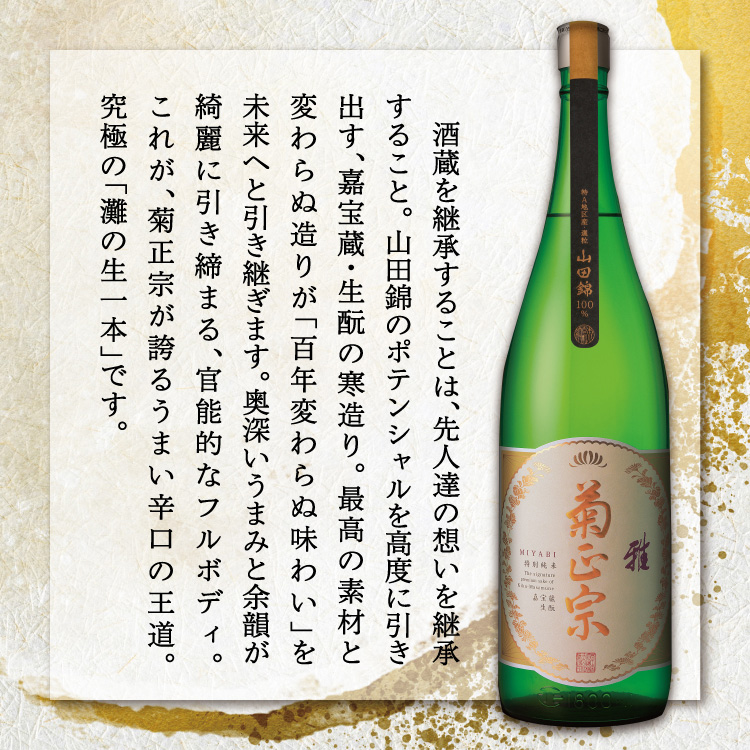 酒蔵を継承することは、先人達の想いを継承
すること。山田錦のポテンシャルを高度に引き
出す、嘉宝蔵・生酛の寒造り。最高の素材と
変わらぬ造りが「百年変わらぬ味わい」を
未来へと引き継ぎます。奥深いうまみと余韻が
綺麗に引き締まる、官能的なフルボディ。
これが、菊正宗が誇るうまい辛口の王道。
究極の「灘の生一本」です。
特A地区産・選粒
山田錦
100%
雅
菊正宗
MIYABI
特別純米
The signature
premium sake of
Kiku-Masamune
嘉宝蔵
生酛